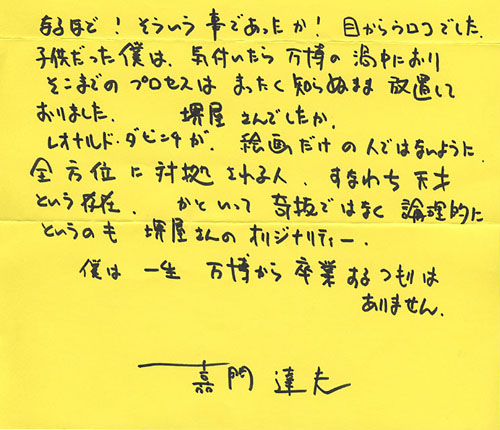 なるほど！そういう事であったか！目からウロコでした.
子供だった僕は、気付いたら万博の渦中におり
そこまでのプロセスはまったく知らぬまま放置して
おりました.　堺屋さんでしたか.
レオナルド・ダビンチが、絵画だけの人ではないように
全方位に対処される人、すなわち天才
という存在、かといって奇抜ではなく論理的に
というのも堺屋さんのオリジナリティー.
僕は一生万博から卒業するつもりは
ありません.
嘉門達夫